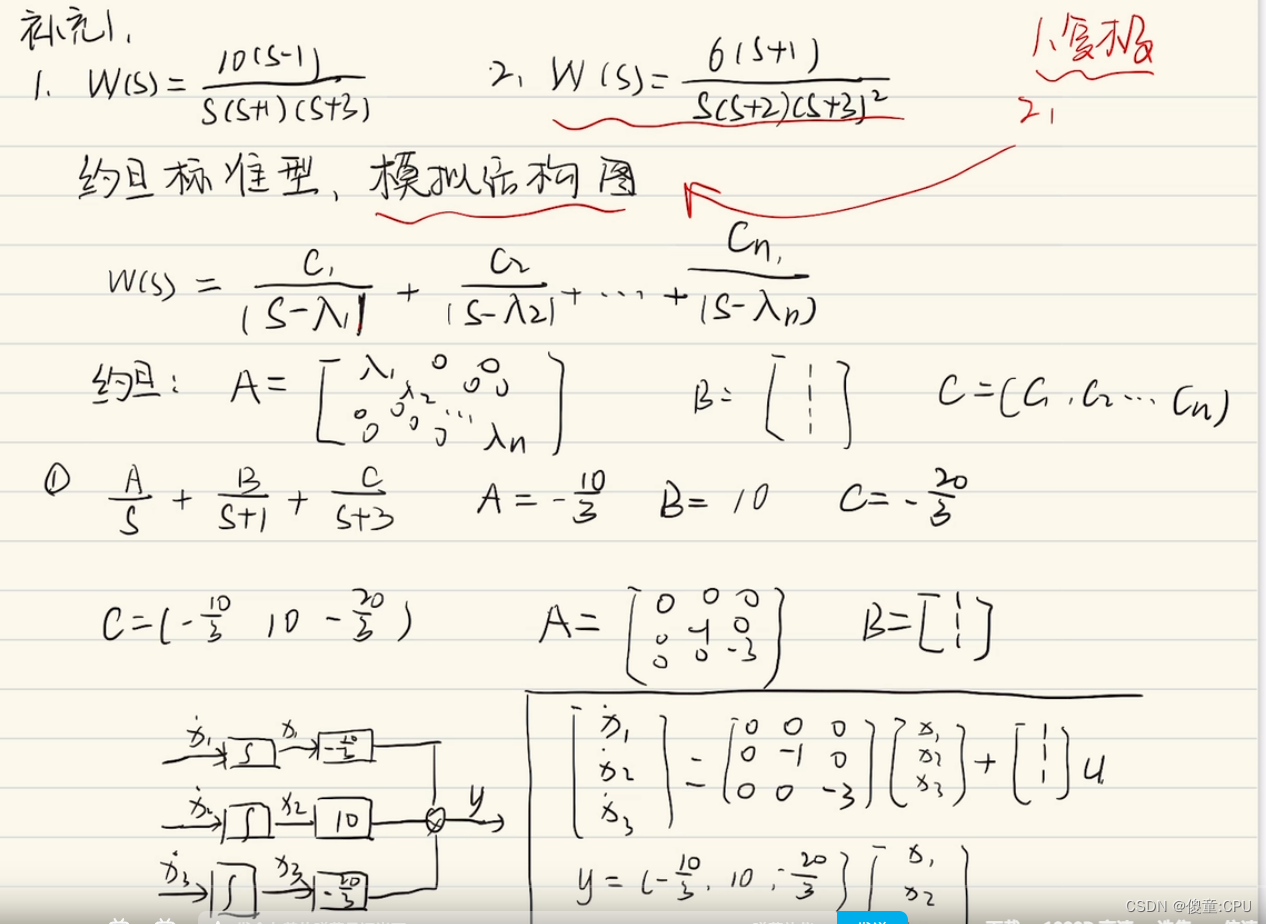 补充1.
1. W(s) = 10(s-1) / s(s+1)(s+3)  2, W(s) = 6(s+1) / s(s+2)(s+3)²
1、复极
2,
约旦标准型、模拟结构图
W(s) = C₁/(s-λ₁) + C₂/(s-λ2) + ... + Cn,/(s-λn)
约旦: A= [λ₁ 0 0; λ2 0 0; 0 0 0 ...; 0 0 λn]  B= [1 1 1 1]  C=(C₁, C₂ ... Cn)
① A/s + B/s+1 + C/s+3  A=-10/3  B=10  C=-20/3
C=(-10/3 10 -20/3)  A= [0 0 0; 0 -1 0; 0 0 -3]  B=[1 1 1]
ẋ₁ ∫ x₁ -10/3
ẋ₂ ∫ x2 10 y
ẋ₃ ∫ x3 -20/3
[ẋ₁; ẋ2; ẋ₃] = [0 0 0; 0 -1 0; 0 0 -3] [x₁; x2; x3] + [1 1 1] u
y = (-10/3, 10, -20/3) [x₁; x₂
CSDN @傻童:CPU